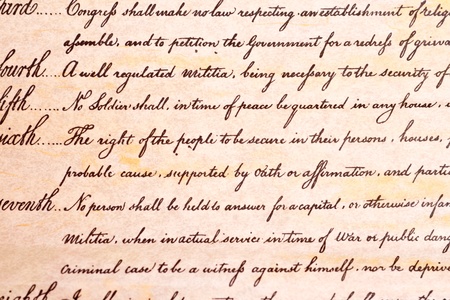 Congress shall make no law respecting an establishment of relig
assemble, and to petition the Government for a redress of grieva
ourth...... A well regulated Militia, being necessary to the security of
ifth...... No Soldier shall, in time of peace be quartered in any house,
ixth...... The right of the people to be secure in their persons, houses,
probable cause, supported by Oath or affirmation, and parti
eventh... No person shall be held to answer for a capital, or otherwise infam
Militia, when in actual service in time of War or public dang
criminal case to be a witness against himself, nor be deprive